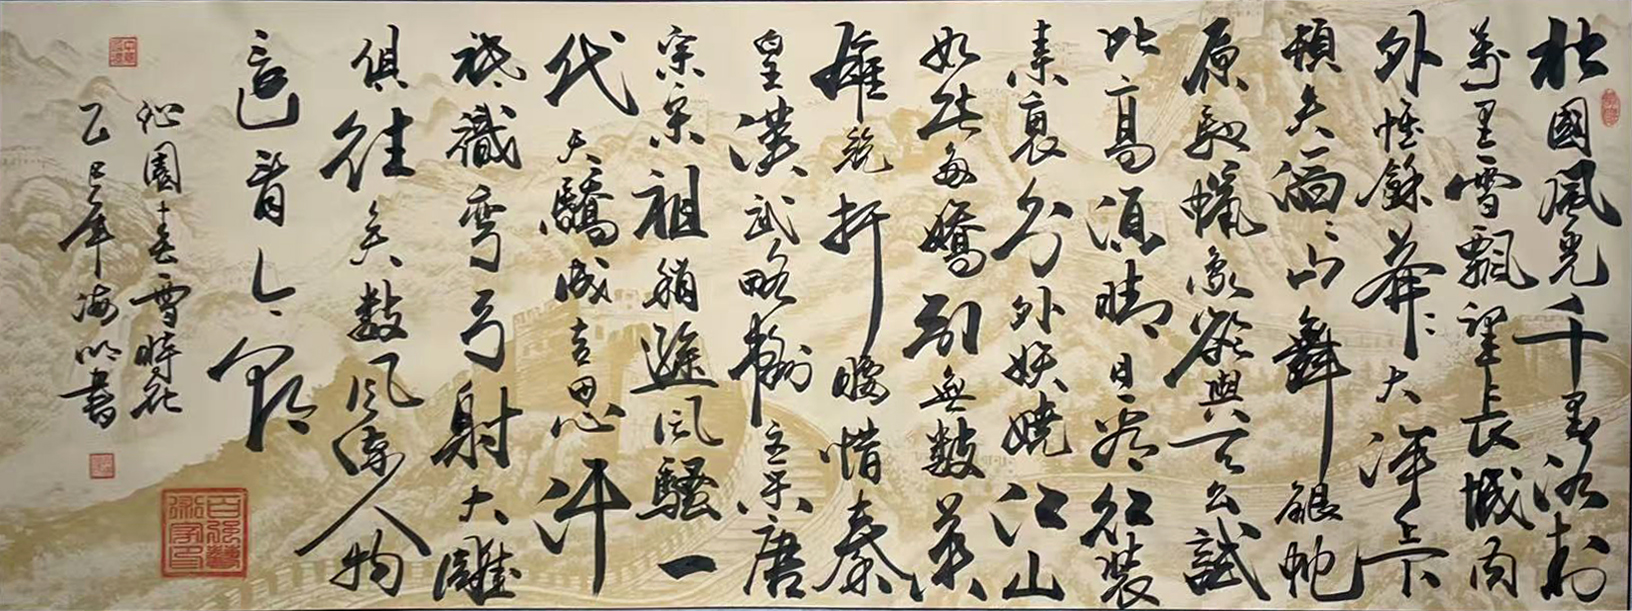 北國風光千里冰封
萬里雪飄望長城内
外惟餘莽〻大河上下
頓失滔〻山舞銀蛇
原馳蠟象欲與天公試
比高須晴日看紅裝
素裹分外妖嬈江山
如此多嬌引無數英
雄競折腰惜秦
皇漢武略輸文采唐
宗宋祖稍遜風騷一
代天驕成吉思汗
祇識彎弓射大雕
俱往矣數風流人物
還看今朝
沁園春雪時在
乙巳年海明書